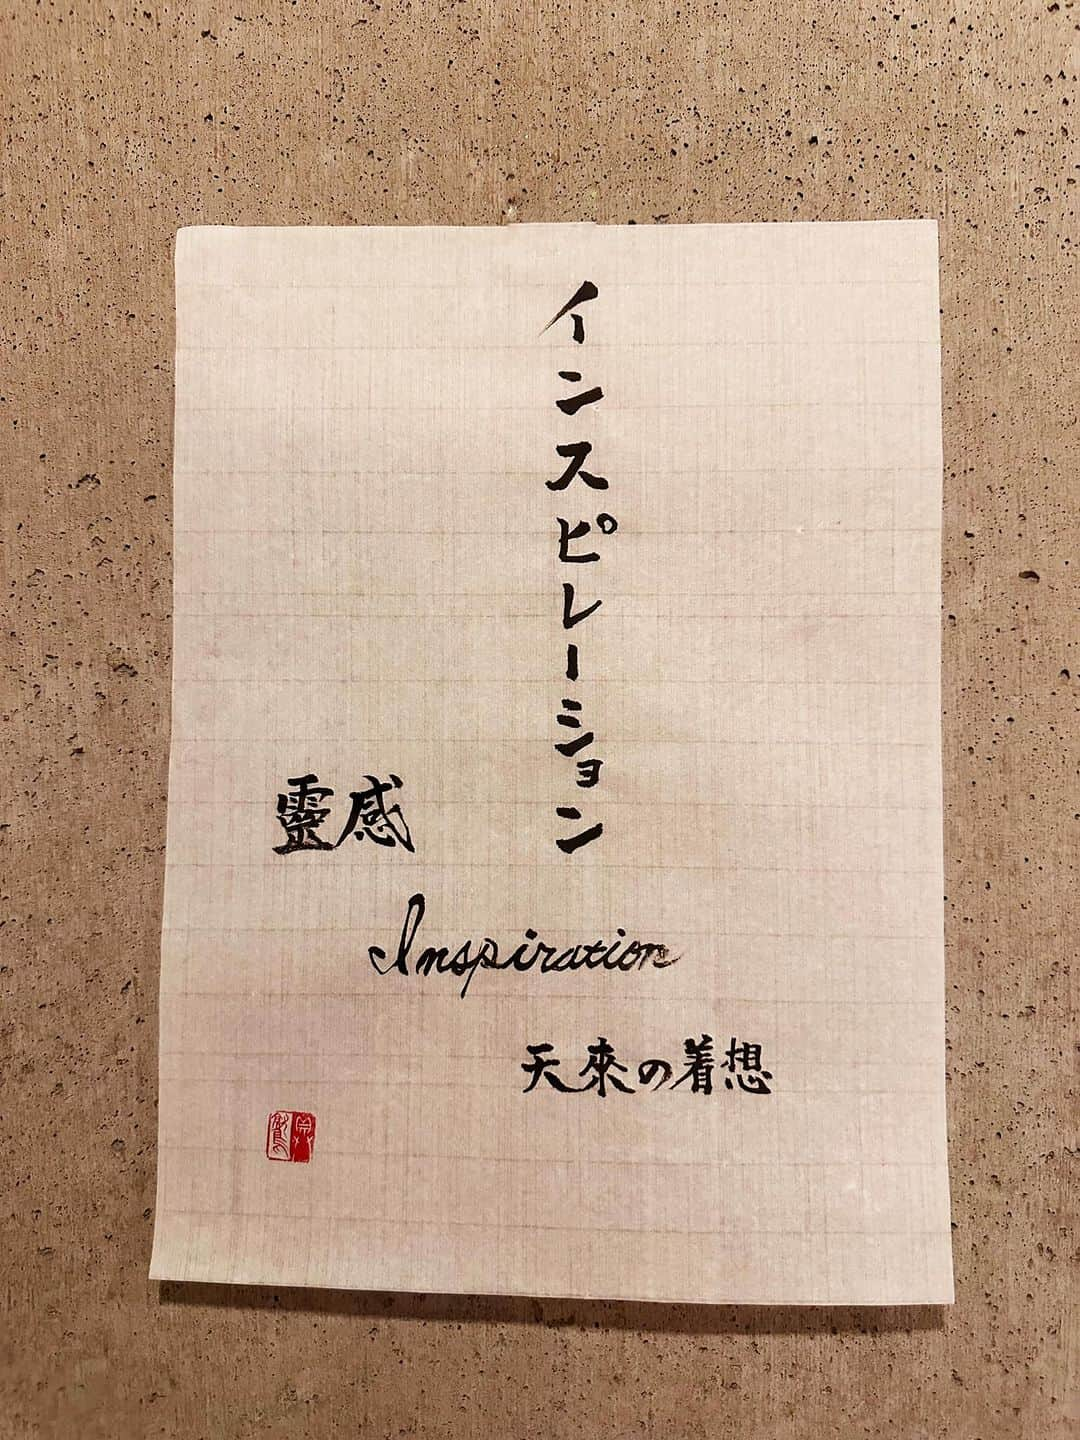 インスピレーション
靈感
Inspiration
天來の着想